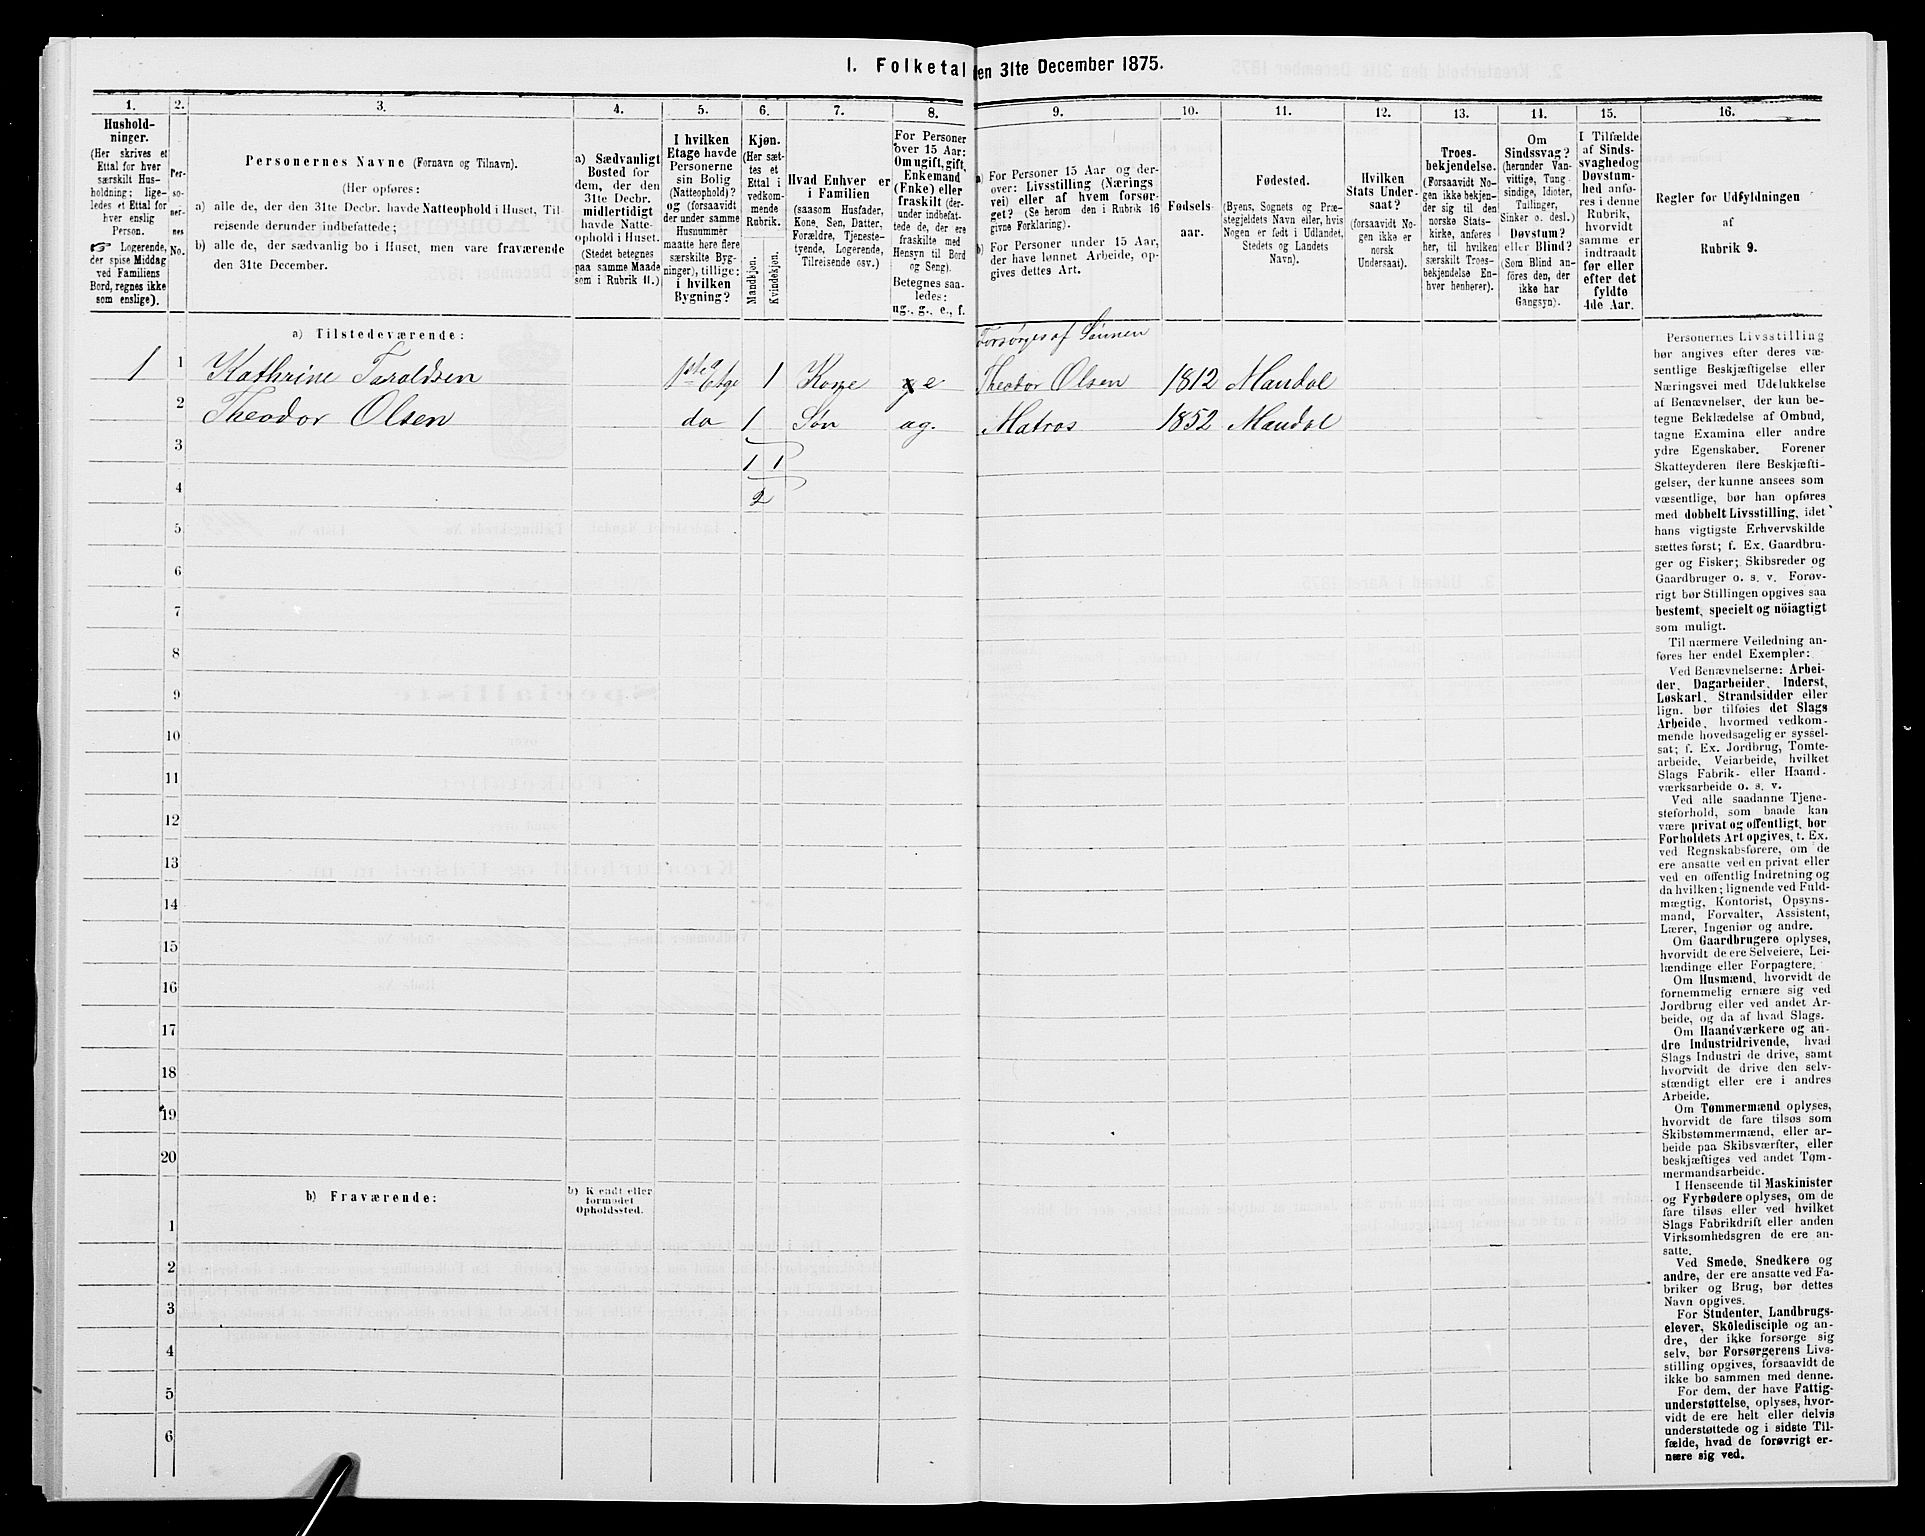 1. Folketal den 31te December 1875.
1. 2. 3. 4. 5. 6. 7. 8. 9. 10. 11. 12. 13. 14. 15. 16.
Hushold-
ninger.
(Her skrives et
Ettal for hver
særskilt Hus-
holdning; lige-
ledes et Ettal for
hver enslig
Person.
☞ Logerende,
der spise Middag
ved Familiens
Bord, regnes ikke
som enslige).
Per-
so-
ner-
nes
No.
Personernes Navne (Fornavn og Tilnavn).
(Her opføres:
a) alle de, der den 31te Decbr. havde Natteophold i Huset, Til-
reisende derunder indbefattede;
b) alle de, der sædvanlig bo i Huset, men vare fraværende
den 31te December.
a) Sædvanligt
Bosted for
dem, der den
31te Decbr.
midlertidigt
havde Natte-
ophold i Huset.
(Stedet betegnes
paa samme Maade
som i Rubrik 11.)
I hvilken
Etage havde
Personerne
sin Bolig
(Natteophold)?
og (forsaavidt
der under samme
Husnummer
maatte høre flere
særskilte Byg-
ninger), tillige:
i hvilken
Bygning?
Kjøn.
(Her sæt-
tes et
Ettal i
vedkom-
mende
Rubrik.
Mandkjøn.
Kvindekjøn.
Hvad Enhver er
i Familien
(saasom Husfader,
Kone, Søn, Datter,
Forældre, Tjeneste-
tyende, Logerende,
Tilreisende osv.)
For Personer
over 15 Aar:
Om ugift, gift,
Enkemand
(Enke) eller
fraskilt (der-
under indbefat-
tede de, der ere
fraskilte med
Hensyn til Bord
og Seng).
Betegnes saa-
ledes:
ug., g., e., f.
a) For Personer 15 Aar og der-
over: Livsstilling (Nærings-
vei) eller af hvem forsør-
get? (Se herom den i Rubrik 16
givne Forklaring).
b) For Personer under 15 Aar,
der have lønnet Arbeide, op-
gives dettes Art.
Fødsels-
aar.
Fødested.
(Byens, Sognets og Præ-
stegjeldets Navn eller, hvis
Nogen er født i Udlandet,
Stedets og Landets
Navn).
Hvilken
Stats Under-
saat?
(forsaavidt No-
gen ikke er
norsk
Undersaat).
Troes-
bekjendelse.
(Forsaavidt No-
gen ikke bekjen-
der sig til den
norske Stats-
kirke, anføres
her, til hvilken
særskilt Troes-
bekjendelse En-
hver henhører).
Om
Sindssvag?
(herunder Van-
vittige, Tung-
sindige, Idioter,
Tullinger,
Sinker o. desl.)
Døvstum?
eller Blind?
(Som Blind an-
føres den, der
ikke har
Gangsyn).
I Tilfælde
af Sinds-
svaghed og
Døvstum-
hed anfø-
res i denne
Rubrik,
hvorvidt
samme er
indtraadt
før eller
efter det
fyldte
4de Aar.
Regler for Udfyldningen
af
Rubrik 9.
a) Tilstedeværende:
Forsørges af Sønnen
1 1 Kathrine Taraldsen 1ste Etge 1 Kone g e Theodor Olsen 1812 Mandal
2 Theodor Olsen do 1 Søn ug. Matros 1852 Mandal
3 1 1
4 2
5
6
7
8
9
10
11
12
13
14
15
16
17
18
19
20
b) Fraværende:
b) Kjendt eller
formodet
Opholdssted.
1
2
3
4
5
6
Personernes Livsstilling
bør angives efter deres væ-
sentlige Beskjæftigelse eller
Næringsvei med Udelukkelse
af Benævnelser, der kun be-
tegne Beklædelse af Ombud,
tagne Examina eller andre
ydre Egenskaber. Forener
Skatteyderen flere Beskjæfti-
gelser, der kunne ansees som
væsentlige, bør han opføres
med dobbelt Livsstilling, idet
hans vigtigste Erhvervskilde
sættes først; f. Ex. Gaardbru-
ger og Fisker; Skibsreder og
Gaardbruger o. s. v. Forøv-
rigt bør Stillingen opgives saa
bestemt, specielt og nöiagtigt
som muligt.
Til nærmere Veiledning an-
føres her endel Exempler:
Ved Benævnelserne: Arbei-
der, Dagarbeider, Inderst,
Løskarl, Strandsidder eller
lign. bør tilføies det Slags
Arbeide, hvormed vedkom-
mende hovedsagelig er syssel-
sat; f. Ex. Jordbrug, Tomte-
arbeide, Veiarbeide, hvilket
Slags Fabrik- eller Haand-
værksarbeide o. s. v.
Ved alle saadanne Tjene-
steforhold, som baade kan
være privat og offentligt, bør
Forholdets Art opgives, t. Ex.
ved Regnskabsførere, om de
ere ansatte ved en privat eller
ved en offentlig Indretning og
da hvilken; lignende ved Fuld-
mægtig, Kontorist, Opsyns-
mand, Forvalter, Assistent,
Lærer, Ingeniør og andre.
Om Gaardbrugere oplyses,
hvorvidt de ere Selveiere, Lei-
lændinge eller Forpagtere.
Om Husmænd, hvorvidt de
fornemmelig ernære sig ved
Jordbrug eller ved andet Ar-
beide, og da af hvad Slags.
Om Haandværkere og an-
dre Industridrivende, hvad
Slags Industri de drive, samt
hvorvidt de drive den selv-
stændigt eller ere i andres
Arbeide.
Om Tømmermænd oplyses,
hvorvidt de fare tilsøs som
Skibstømmermænd, eller ar-
beide paa Skibsværfter, eller
beskjæftiges ved andet Tøm-
mermandsarbeide.
I Henseende til Maskinister
og Fyrbødere oplyses, om de
fare tilsøs eller ved hvilket
Slags Fabrikdrift eller anden
Virksomhedsgren de ere an-
satte.
Ved Smede, Snedkere og
andre, der ere ansatte ved Fa-
briker og Brug, bør dettes
Navn opgives.
For Studenter, Landbrugs-
elever, Skoledisciple og an-
dre, der ikke forsørge sig
selv, bør Forsørgerens Livs-
stilling opgives, forsaavidt de
ikke bo sammen med denne.
For dem, der have Fattig-
understøttelse, oplyses, hvor-
vidt de ere helt eller delvis
understøttede og i sidste Til-
fælde, hvad de forøvrigt er-
nære sig ved.